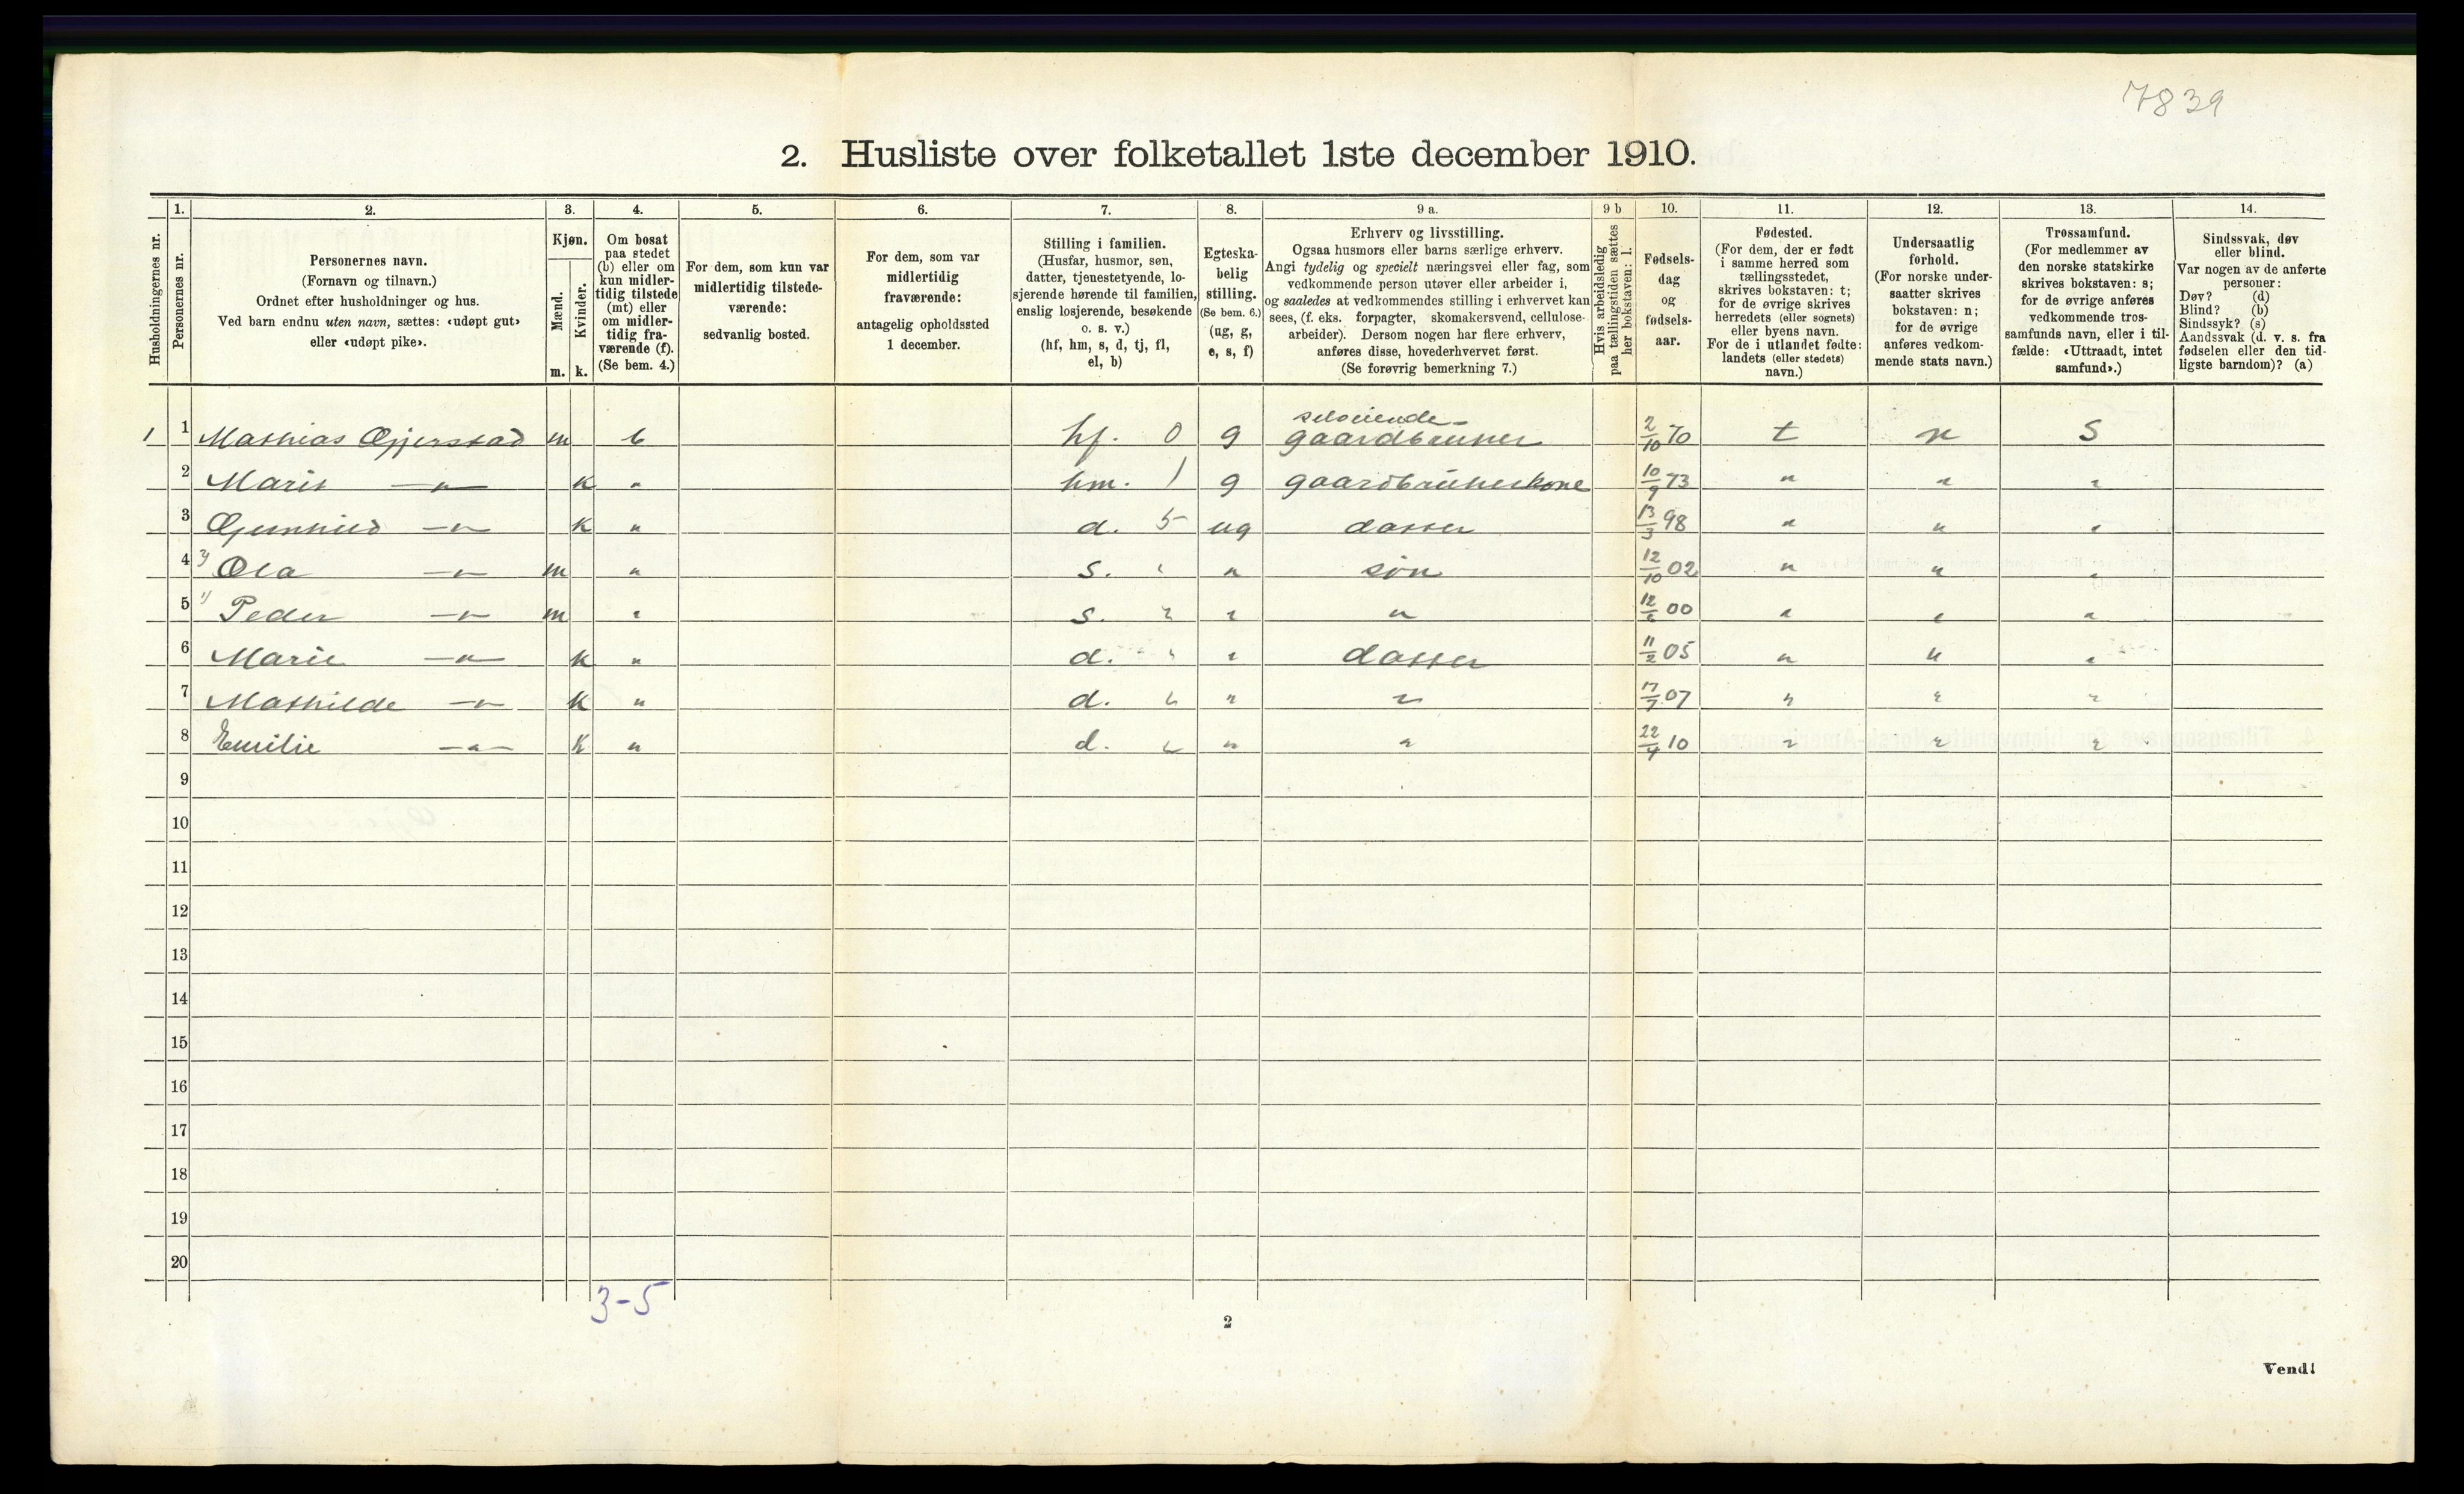 7839
2. Husliste over folketallet 1ste december 1910.
Husholdningernes nr.
1.
Personernes nr.
2.
Personernes navn.
(Fornavn og tilnavn.)
Ordnet efter husholdninger og hus.
Ved barn endnu uten navn, sættes: «udøpt gut»
eller «udøpt pike».
3.
Kjøn.
Mænd.
Kvinder.
m. k.
4.
Om bosat
paa stedet
(b) eller om
kun midler-
tidig tilstede
(mt) eller
om midler-
tidig fra-
værende (f).
(Se bem. 4.)
5.
For dem, som kun var
midlertidig tilstede-
værende:
sedvanlig bosted.
6.
For dem, som var
midlertidig
fraværende:
antagelig opholdssted
1 december.
7.
Stilling i familien.
(Husfar, husmor, søn,
datter, tjenestetyende, lo-
sjerende hørende til familien,
enslig losjerende, besøkende
o. s. v.)
(hf, hm, s, d, tj, fl,
el, b)
8.
Egteska-
belig
stilling.
(Se bem. 6.)
(ug, g,
e, s, f)
9 a.
Erhverv og livsstilling.
Ogsaa husmors eller barns særlige erhverv.
Angi tydelig og specielt næringsvei eller fag, som
vedkommende person utøver eller arbeider i,
og saaledes at vedkommendes stilling i erhvervet kan
sees, (f. eks. forpagter, skomakersvend, cellulose-
arbeider). Dersom nogen har flere erhverv,
anføres disse, hovederhvervet først.
(Se forøvrig bemerkning 7.)
9 b
Hvis arbeidsledig
paa tællingstiden sættes
her bokstaven: l.
10.
Fødsels-
dag
og
fødsels-
aar.
11.
Fødested.
(For dem, der er født
i samme herred som
tællingsstedet,
skrives bokstaven: t;
for de øvrige skrives
herredets (eller sognets)
eller byens navn.
For de i utlandet fødte:
landets (eller stedets)
navn.)
12.
Undersaatlig
forhold.
(For norske under-
saatter skrives
bokstaven: n;
for de øvrige
anføres vedkom-
mende stats navn.)
13.
Trossamfund.
(For medlemmer av
den norske statskirke
skrives bokstaven: s;
for de øvrige anføres
vedkommende tros-
samfunds navn, eller i til-
fælde: «Uttraadt, intet
samfund».)
14.
Sindssvak, døv
eller blind.
Var nogen av de anførte
personer:
Døv? (d)
Blind? (b)
Sindssyk? (s)
Aandssvak (d. v. s. fra
fødselen eller den tid-
ligste barndom)? (a)
selveiende-
1 1 Mathias Gjerstad m b hf. 0 g gaardbruker 2/10 70 t n S
2 Marit —"— k " hm. 1 g gaardbrukerkone 10/9 73 " " "
3 Gunhild —"— k " d. 5 ug datter 13/3 98 " " "
4 2) Ola —"— m " s. " " søn 12/10 02 " " "
5 1) Peder —"— m " s. " " " 12/6 00 " " "
6 Marie —"— k " d. " " datter 11/2 05 " " "
7 Mathilde —"— k " d. " " " 17/7 07 " " "
8 Emilie —"— k " d. " " " 22/4 10 " " "
9
10
11
12
13
14
15
16
17
18
19
20
3-5
2
Vend!